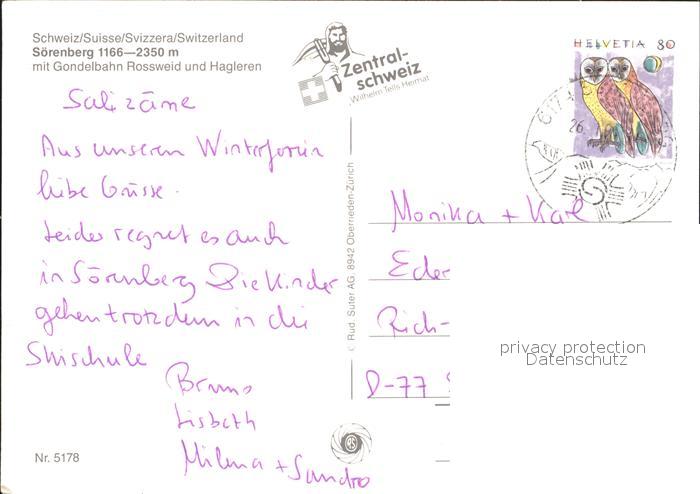 Schweiz/Suisse/Svizzera/Switzerland
Sörenberg 1166—2350 m
mit Gondelbahn Rossweid und Hagleren
Zentral-
schweiz
Wilhelm Tells Heimat
HELVETIA 80
Salizäme
Aus unseren Winterferien
liebe Grüsse.
Leider regnet es auch
in Sörenberg Die Kinder
gehen trotzdem in die
Skischule
Bruno
Lisbeth
Milena + Sandro
Monika + Karl
Eder
Rich-
D-77
© Rud. Suter AG, 8942 Oberrieden-Zürich
privacy protection
Datenschutz
Nr. 5178